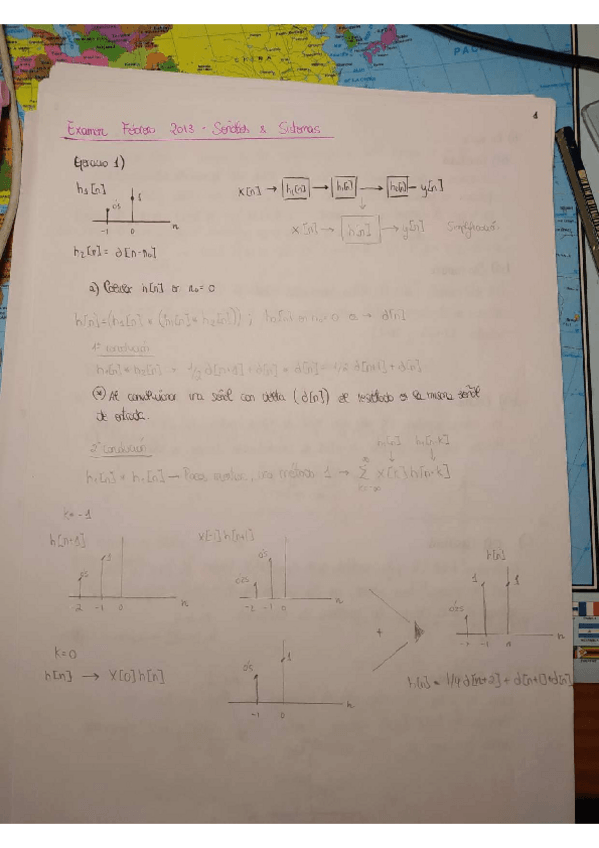 1
Examen Febrero 2013 - Señales & Sistemas
Ejercicio 1)
h₁[n]
0's
1
-1 0 n
x[n] → h₁[n] → h₁[n] → h₂[n] - y[n]
x[n] → h[n] → y[n] Simplificación
h₂[n] = δ[n-n₀]
a) Obtener h[n] si n₀=0
h[n] = (h₁[n] * (h₁[n] * h₂[n])) ; h₂[n] n₀=0 → δ[n]
1ª convolución
h₁[n] * h₂[n] = 1/2 δ[n+1] + δ[n] * δ[n] = 1/2 δ[n+1] + δ[n]
(*) Al convolucionar una señal con delta (δ[n]) el resultado es la misma señal
de entrada.
2ª convolución
h₁[n] h₁[n-k]
h₁[n] * h₁[n] → Para evaluar, una 1 → ∑ x[k] h[n-k]
k=-∞ ∞
k=-1
h[n+1]
0's 1
-2 -1 0 n
x[-1] h[n+1]
0'25 0's
-2 -1 0 n
h[n]
0'25 1 1
-2 -1 0 n
+
k=0
h[n] → x[0] h[n]
0's 1
-1 0 n
h[n] = 1/4 δ[n+2] + δ[n+1] + δ[n]